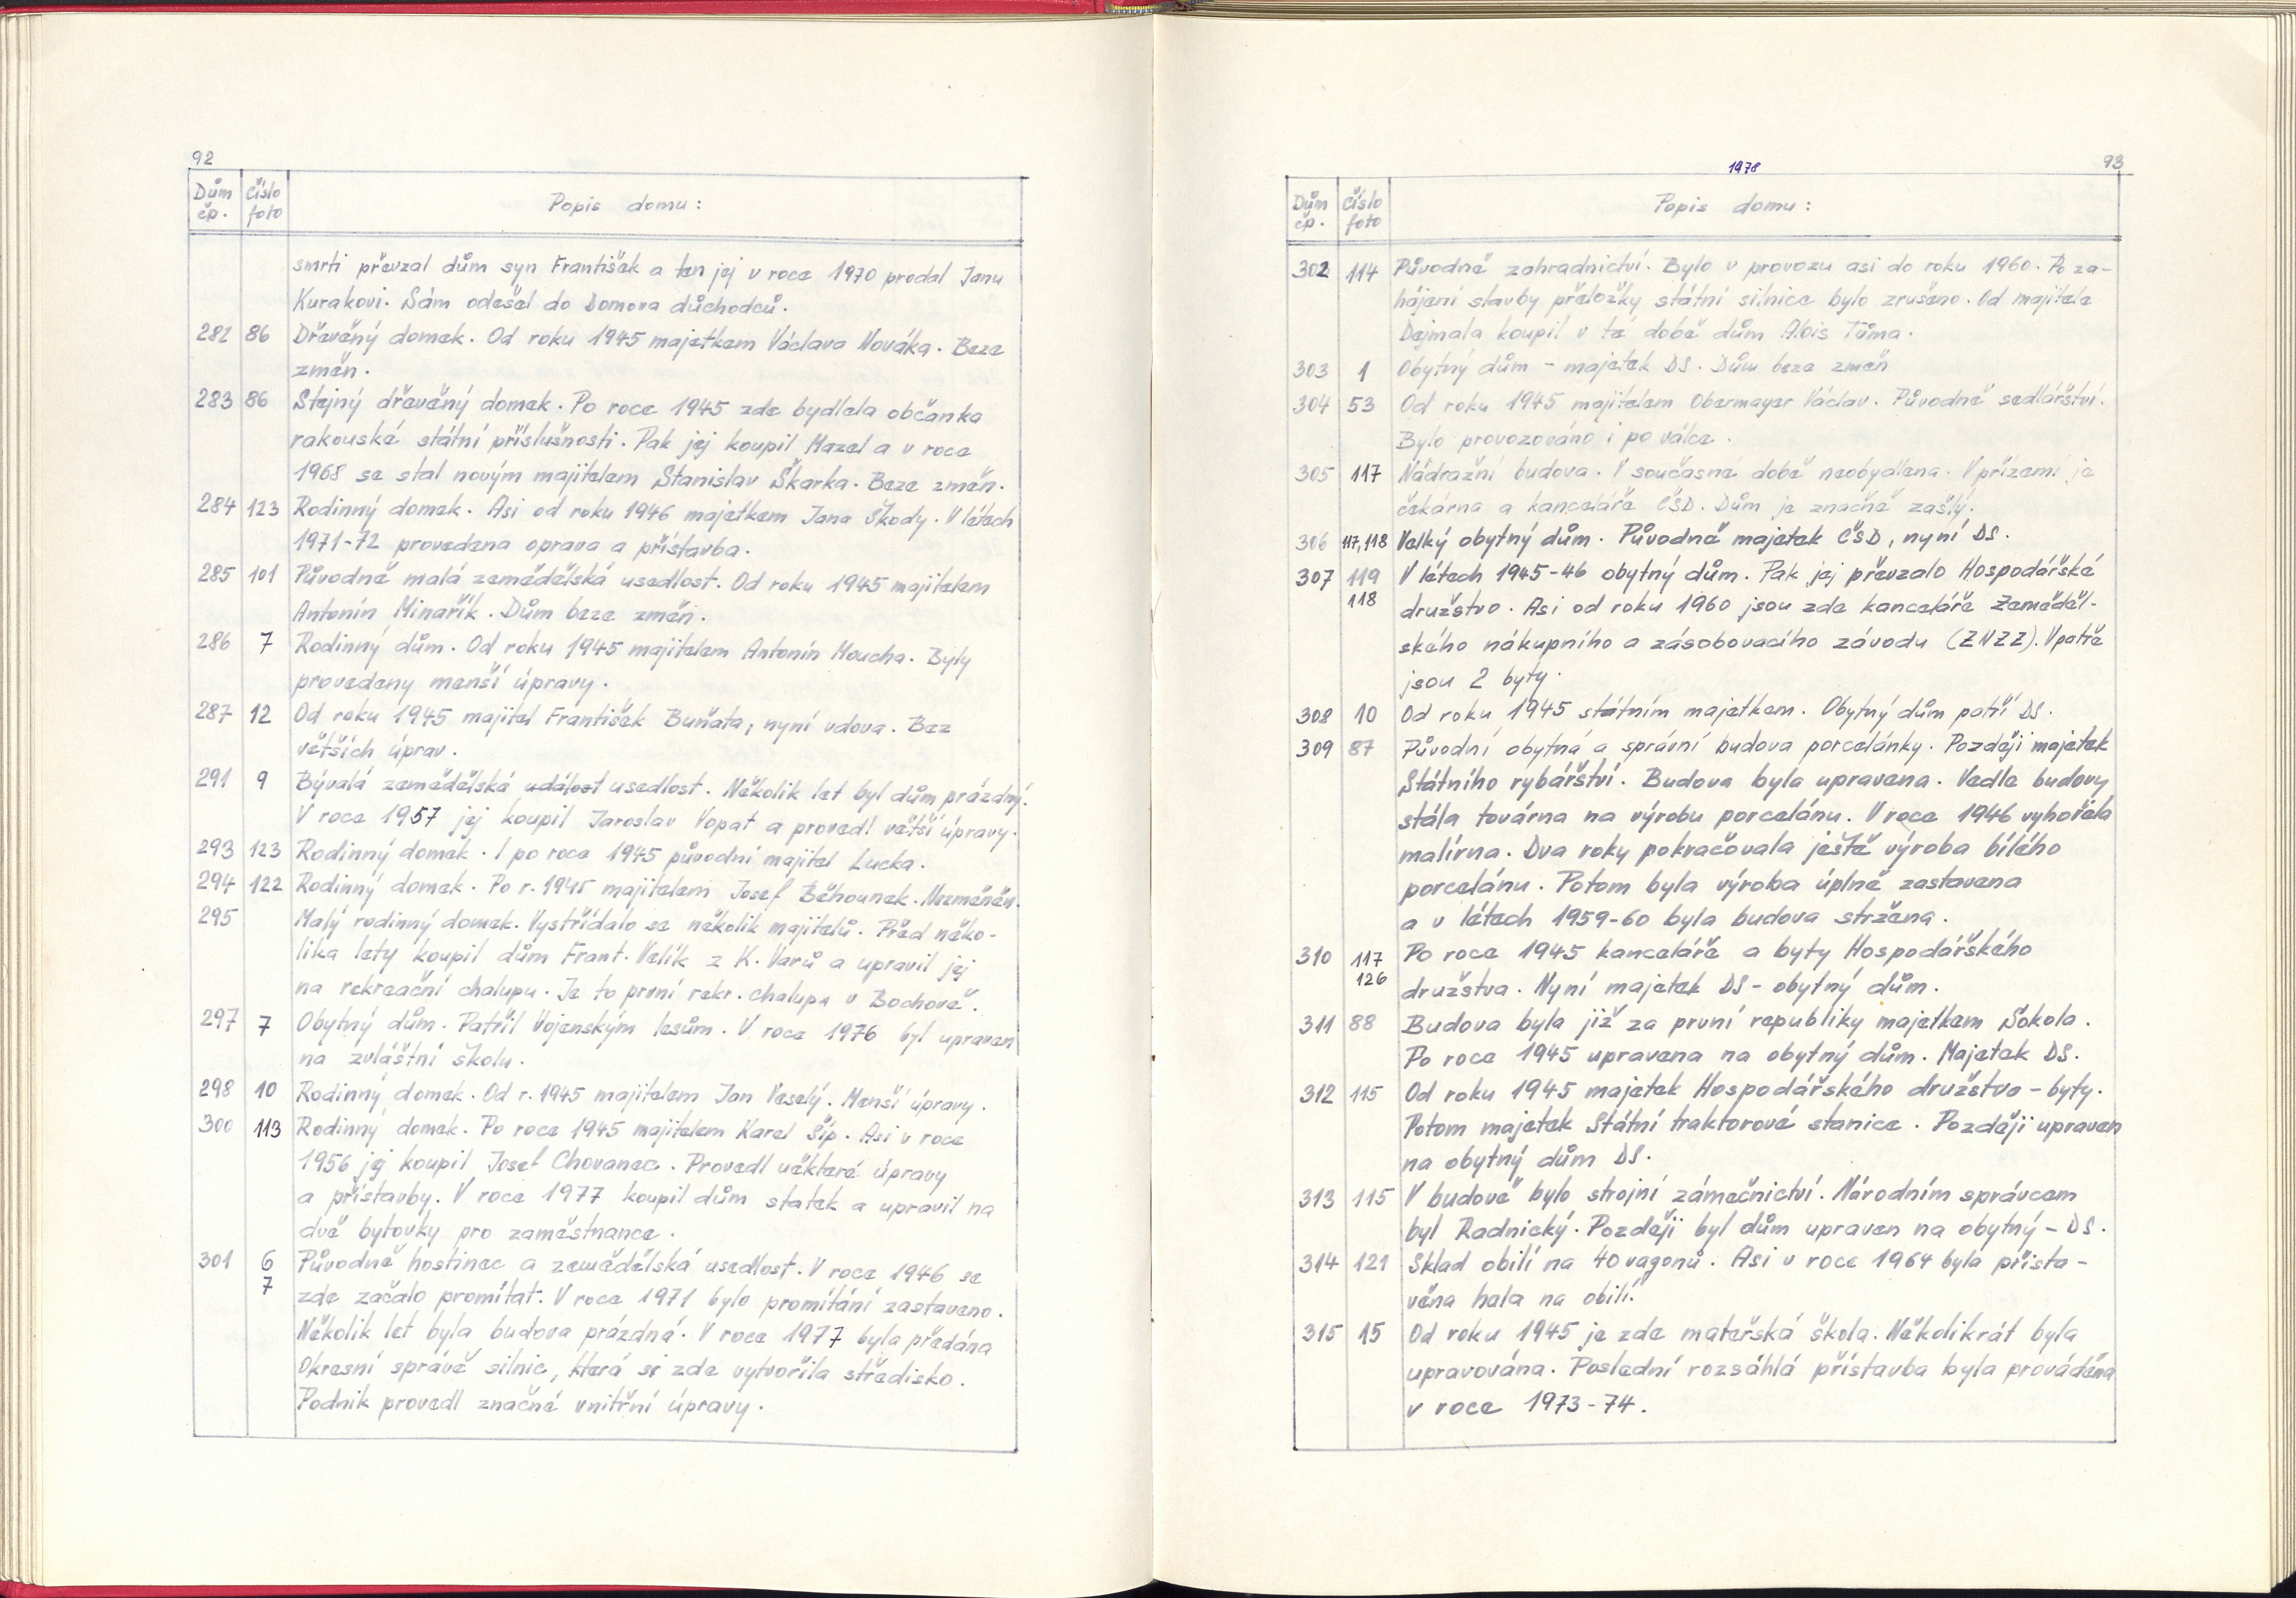 92
Dům čp. Číslo foto Popis domu:
smrti převzal dům syn František a ten jej v roce 1970 prodal Janu
Kurakovi. Sám odešel do Domova důchodců.
282 86 Dřevěný domek. Od roku 1945 majetkem Václava Nováka. Beze
změn.
283 86 Stejný dřevěný domek. Po roce 1945 zde bydlela občanka
rakouské státní příslušnosti. Pak jej koupil Mazel a v roce
1968 se stal novým majitelem Stanislav Škarka. Beze změn.
284 123 Rodinný domek. Asi od roku 1946 majetkem Jana Škody. V létech
1971-72 provedena oprava a přístavba.
285 101 Původně malá zemědělská usedlost. Od roku 1945 majitelem
Antonín Minařík. Dům beze změn.
286 7 Rodinný dům. Od roku 1945 majitelem Antonín Moucha. Byly
provedeny menší úpravy.
287 12 Od roku 1945 majitel František Buňata, nyní vdova. Bez
větších úprav.
291 9 Bývalá zemědělská událost usedlost. Několik let byl dům prázdný.
V roce 1957 jej koupil Jaroslav Vopat a provedl větší úpravy.
293 123 Rodinný domek. I po roce 1945 původní majitel Lucka.
294 122 Rodinný domek. Po r. 1945 majitelem Josef Běhounek. Nezměněn.
295 Malý rodinný domek. Vystřídalo se několik majitelů. Před něko-
lika lety koupil dům Frant. Velík z K. Varů a upravil jej
na rekreační chalupu. Je to první rekr. chalupa v Bochově.
297 7 Obytný dům. Patřil Vojenským lesům. V roce 1976 byl upraven
na zvláštní školu.
298 10 Rodinný domek. Od r. 1945 majitelem Jan Veselý. Menší úpravy.
300 113 Rodinný domek. Po roce 1945 majitelem Karel Šíp. Asi v roce
1956 jej koupil Josef Chovanec. Provedl některé úpravy
a přístavby. V roce 1977 koupil dům statek a upravil na
dvě bytovky pro zaměstnance.
301 6 Původně hostinec a zemědělská usedlost. V roce 1946 se
7 zde začalo promítat. V roce 1971 bylo promítání zastaveno.
Několik let byla budova prázdná. V roce 1977 byla předána
Okresní správě silnic, která si zde vytvořila středisko.
Podnik provedl značné vnitřní úpravy.
1978
93
Dům čp. Číslo foto Popis domu:
302 114 Původně zahradnictví. Bylo v provozu asi do roku 1960. Po za-
hájení stavby přeložky státní silnice bylo zrušeno. Od majitele
Dejmala koupil v té době dům Alois Tůma.
303 1 Obytný dům - majetek DS. Dům beze změn
304 53 Od roku 1945 majitelem Obermayer Václav. Původně sedlářství.
Bylo provozováno i po válce.
305 117 Nádražní budova. V současné době neobydlena. V přízemí je
čekárna a kanceláře ČSD. Dům je značně zašlý.
306 117,118 Velký obytný dům. Původně majetek ČSD, nyní DS.
307 119 V létech 1945-46 obytný dům. Pak jej převzalo Hospodářské
118 družstvo. Asi od roku 1960 jsou zde kanceláře Zeměděl-
ského nákupního a zásobovacího závodu (ZNZZ). V patře
jsou 2 byty.
308 10 Od roku 1945 státním majetkem. Obytný dům patří DS.
309 87 Původní obytná a správní budova porcelánky. Později majetek
Státního rybářství. Budova byla upravena. Vedle budovy
stála továrna na výrobu porcelánu. V roce 1946 vyhořela
malírna. Dva roky pokračovala ještě výroba bílého
porcelánu. Potom byla výroba úplně zastavena
a v létech 1959-60 byla budova stržena.
310 117 Po roce 1945 kanceláře a byty Hospodářského
126 družstva. Nyní majetek DS - obytný dům.
311 88 Budova byla již za první republiky majetkem Sokola.
Po roce 1945 upravena na obytný dům. Majetek DS.
312 115 Od roku 1945 majetek Hospodářského družstvo - byty.
Potom majetek Státní traktorové stanice. Později upraven
na obytný dům DS.
313 115 V budově bylo strojní zámečnictví. Národním správcem
byl Radnický. Později byl dům upraven na obytný - DS.
314 121 Sklad obilí na 40 vagonů. Asi v roce 1964 byla přista-
věna hala na obilí.
315 15 Od roku 1945 je zde mateřská škola. Několikrát byla
upravována. Poslední rozsáhlá přístavba byla prováděna
v roce 1973-74.